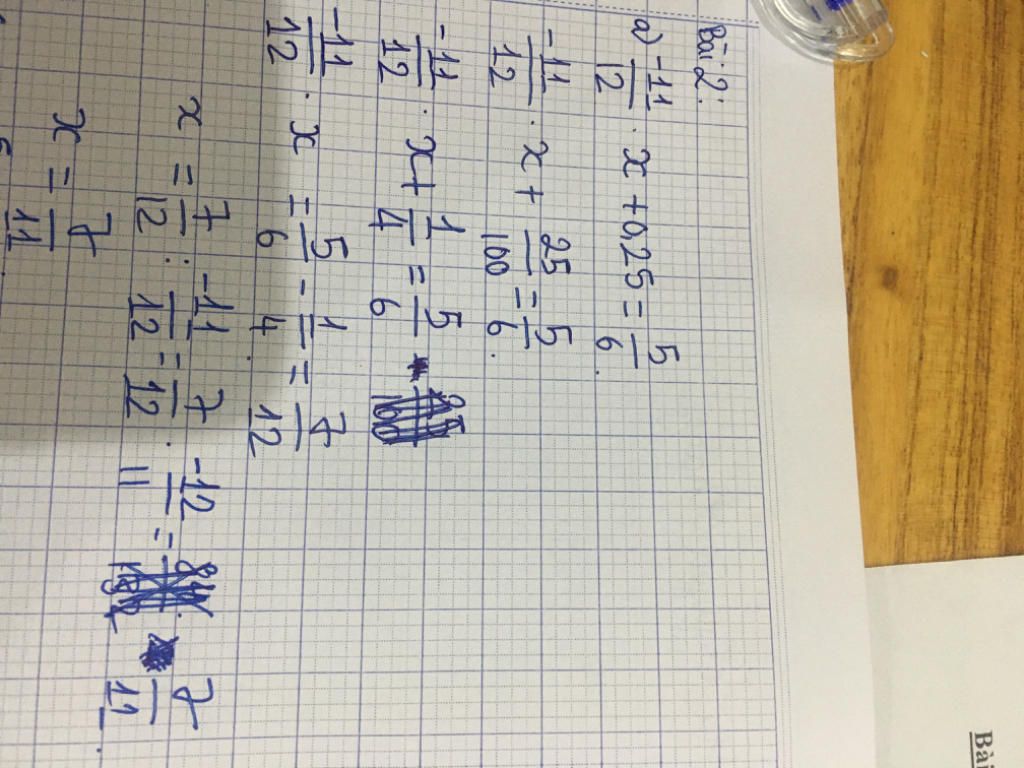 Bài 2:
a) -11/12 . x + 0,25 = 5/6.
-11/12 . x + 25/100 = 5/6.
-11/12 . x + 1/4 = 5/6
-11/12 . x = 5/6 - 1/4 = 7/12
x = 7/12 : -11/12 = 7/12 . -12/11 = 7/11.
x = 7/11.
Bài